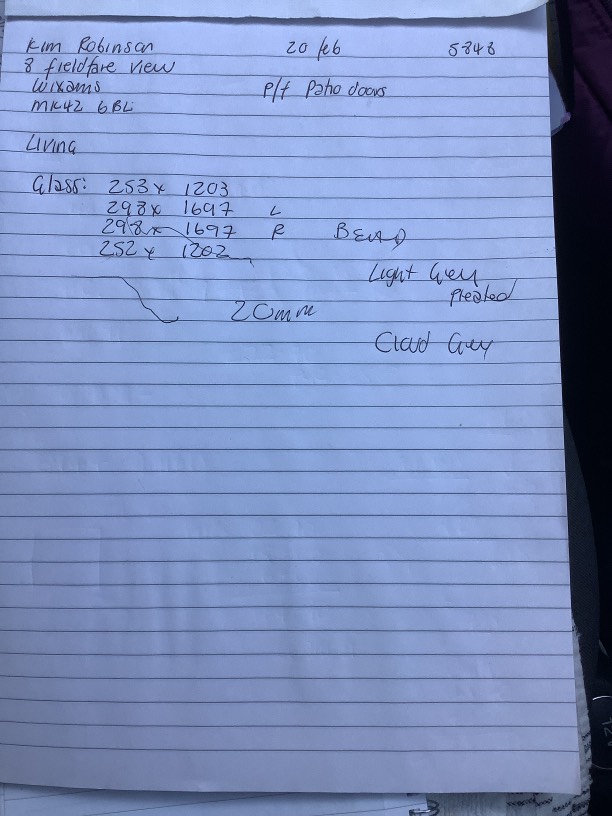 Kim Robinson 20 feb 5848
8 fieldfare view
Wixams P/f Patio doors
MK42 6BL
Living
Glass: 253 x 1203
298 x 1697 L
298 x 1697 R BEAD
252 x 1202
Light Grey
Pleated
20mm
Cloud Grey